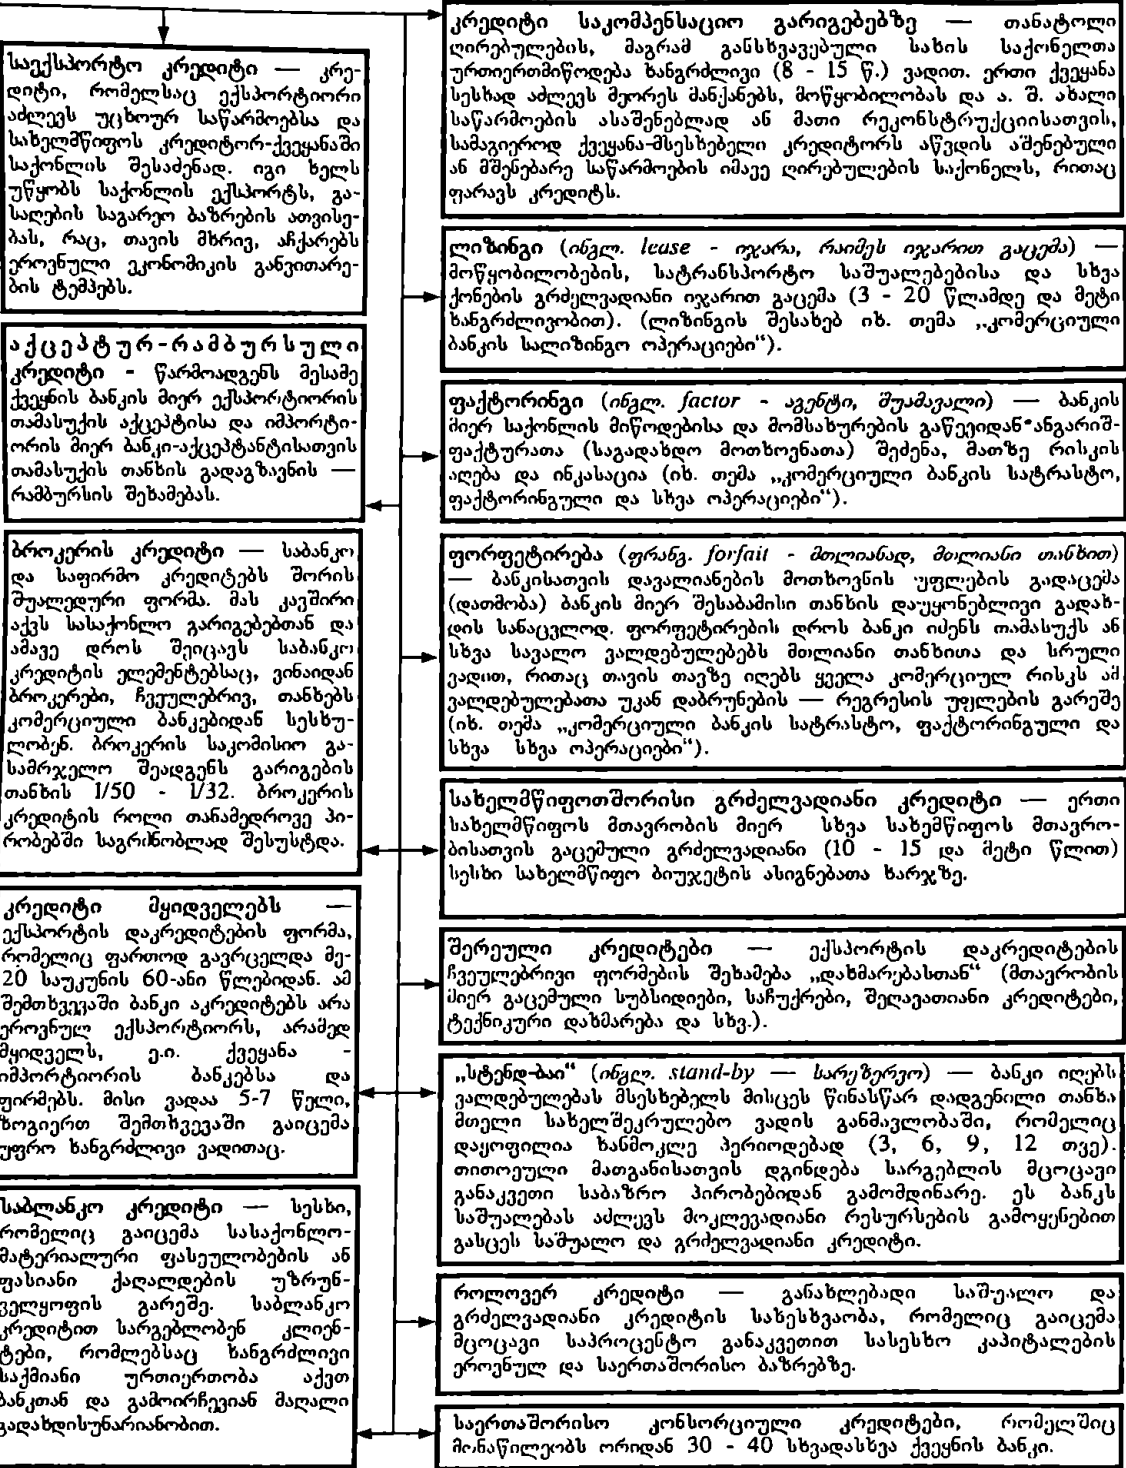 საექსპორტო კრედიტი — კრე-
დიტი, რომელსაც ექსპორტიორი
აძლევს უცხოურ საწარმოებსა და
სახელმწიფოს კრედიტორ-ქვეყანაში
საქონლის შესაძენად. იგი ხელს
უწყობს საქონლის ექსპორტს, გა-
საღების საგარეო ბაზრების ათვისე-
ბას, რაც, თავის მხრივ, აჩქარებს
ეროვნული ეკონომიკის განვითარე-
ბის ტემპებს.
აქცეპტურ-რამბურსული
კრედიტი - წარმოადგენს მესამე
ქვეყნის ბანკის მიერ ექსპორტიორის
თამასუქის აქცეპტისა და იმპორტი-
ორის მიერ ბანკი-აქცეპტანტისათვის
თამასუქის თანხის გადაგზავნის —
რამბურსის შეხამებას.
ბროკერის კრედიტი — საბანკო
და საფირმო კრედიტებს შორის
შუალედური ფორმა. მას კავშირი
აქვს სასაქონლო გარიგებებთან და
ამავე დროს შეიცავს საბანკო
კრედიტის ელემენტებსაც, ვინაიდან
ბროკერები, ჩვეულებრივ, თანხებს
კომერციული ბანკებიდან სესხუ-
ლობენ. ბროკერის საკომისიო გა-
სამრჯელო შეადგენს გარიგების
თანხის 1/50 - 1/32. ბროკერის
კრედიტის როლი თანამედროვე პი-
რობებში საგრძნობლად შესუსტდა.
კრედიტი მყიდველებს —
ექსპორტის დაკრედიტების ფორმა,
რომელიც ფართოდ გავრცელდა მე-
20 საუკუნის 60-ანი წლებიდან. ამ
შემთხვევაში ბანკი აკრედიტებს არა
ეროვნულ ექსპორტიორს, არამედ
მყიდველს, ე.ი. ქვეყანა -
იმპორტიორის ბანკებსა და
ფირმებს. მისი ვადაა 5-7 წელი,
ზოგიერთ შემთხვევაში გაიცემა
უფრო ხანგრძლივი ვადითაც.
საბლანკო კრედიტი — სესხი,
რომელიც გაიცემა სასაქონლო-
მატერიალური ფასეულობების ან
ფასიანი ქაღალდების უზრუნ-
ველყოფის გარეშე. საბლანკო
კრედიტით სარგებლობენ კლიენ-
ტები, რომლებსაც ხანგრძლივი
საქმიანი ურთიერთობა აქვთ
ბანკთან და გამოირჩევიან მაღალი
გადახდისუნარიანობით.
კრედიტი საკომპენსაციო გარიგებებზე — თანატოლი
ღირებულების, მაგრამ განსხვავებული სახის საქონელთა
ურთიერთმიწოდება ხანგრძლივი (8 - 15 წ.) ვადით. ერთი ქვეყანა
სესხად აძლევს მეორეს მანქანებს, მოწყობილობას და ა. შ. ახალი
საწარმოების ასაშენებლად ან მათი რეკონსტრუქციისათვის,
სამაგიეროდ ქვეყანა-მსესხებელი კრედიტორს აწვდის აშენებული
ან მშენებარე საწარმოების იმავე ღირებულების საქონელს, რითაც
ფარავს კრედიტს.
ლიზინგი (ინგლ. lease - იჯარა, რაიმეს იჯარით გაცემა) —
მოწყობილობების, სატრანსპორტო საშუალებებისა და სხვა
ქონების გრძელვადიანი იჯარით გაცემა (3 - 20 წლამდე და მეტი
ხანგრძლივობით). (ლიზინგის შესახებ იხ. თემა „კომერციული
ბანკის სალიზინგო ოპერაციები“).
ფაქტორინგი (ინგლ. factor - აგენტი, შუამავალი) — ბანკის
მიერ საქონლის მიწოდებისა და მომსახურების გაწევიდან ანგარიშ-
ფაქტურათა (საგადახდო მოთხოვნათა) შეძენა, მათზე რისკის
აღება და ინკასაცია (იხ. თემა „კომერციული ბანკის სატრასტო,
ფაქტორინგული და სხვა ოპერაციები“).
ფორფეტირება (ფრანგ. forfait - მთლიანად, მთლიანი თანხით)
— ბანკისათვის დავალიანების მოთხოვნის უფლების გადაცემა
(დათმობა) ბანკის მიერ შესაბამისი თანხის დაუყონებლივი გადახ-
დის სანაცვლოდ. ფორფეტირების დროს ბანკი იძენს თამასუქს ან
სხვა სავალო ვალდებულებებს მთლიანი თანხითა და სრული
ვადით, რითაც თავის თავზე იღებს ყველა კომერციულ რისკს ამ
ვალდებულებათა უკან დაბრუნების — რეგრესის უფლების გარეშე
(იხ. თემა „კომერციული ბანკის სატრასტო, ფაქტორინგული და
სხვა სხვა ოპერაციები“).
სახელმწიფოთშორისი გრძელვადიანი კრედიტი — ერთი
სახელმწიფოს მთავრობის მიერ სხვა სახემწიფოს მთავრო-
ბისათვის გაცემული გრძელვადიანი (10 - 15 და მეტი წლით)
სესხი სახელმწიფო ბიუჯეტის ასიგნებათა ხარჯზე.
შერეული კრედიტები — ექსპორტის დაკრედიტების
ჩვეულებრივი ფორმების შეხამება „დახმარებასთან“ (მთავრობის
მიერ გაცემული სუბსიდიები, საჩუქრები, შეღავათიანი კრედიტები,
ტექნიკური დახმარება და სხვ.).
„სტენდ-ბაი“ (ინგლ. stand-by — სარეზერვო) — ბანკი იღებს
ვალდებულებას მსესხებელს მისცეს წინასწარ დადგენილი თანხა
მთელი სახელშეკრულებო ვადის განმავლობაში, რომელიც
დაყოფილია ხანმოკლე პერიოდებად (3, 6, 9, 12 თვე).
თითოეული მათგანისათვის დგინდება სარგებლის მცოცავი
განაკვეთი საბაზრო პირობებიდან გამომდინარე. ეს ბანკს
საშუალებას აძლევს მოკლევადიანი რესურსების გამოყენებით
გასცეს საშუალო და გრძელვადიანი კრედიტი.
როლოვერ კრედიტი — განახლებადი საშუალო და
გრძელვადიანი კრედიტის სახესხვაობა, რომელიც გაიცემა
მცოცავი საპროცენტო განაკვეთით სასესხო კაპიტალების
ეროვნულ და საერთაშორისო ბაზრებზე.
საერთაშორისო კონსორციული კრედიტები, რომელშიც
მონაწილეობს ორიდან 30 - 40 სხვადასხვა ქვეყნის ბანკი.